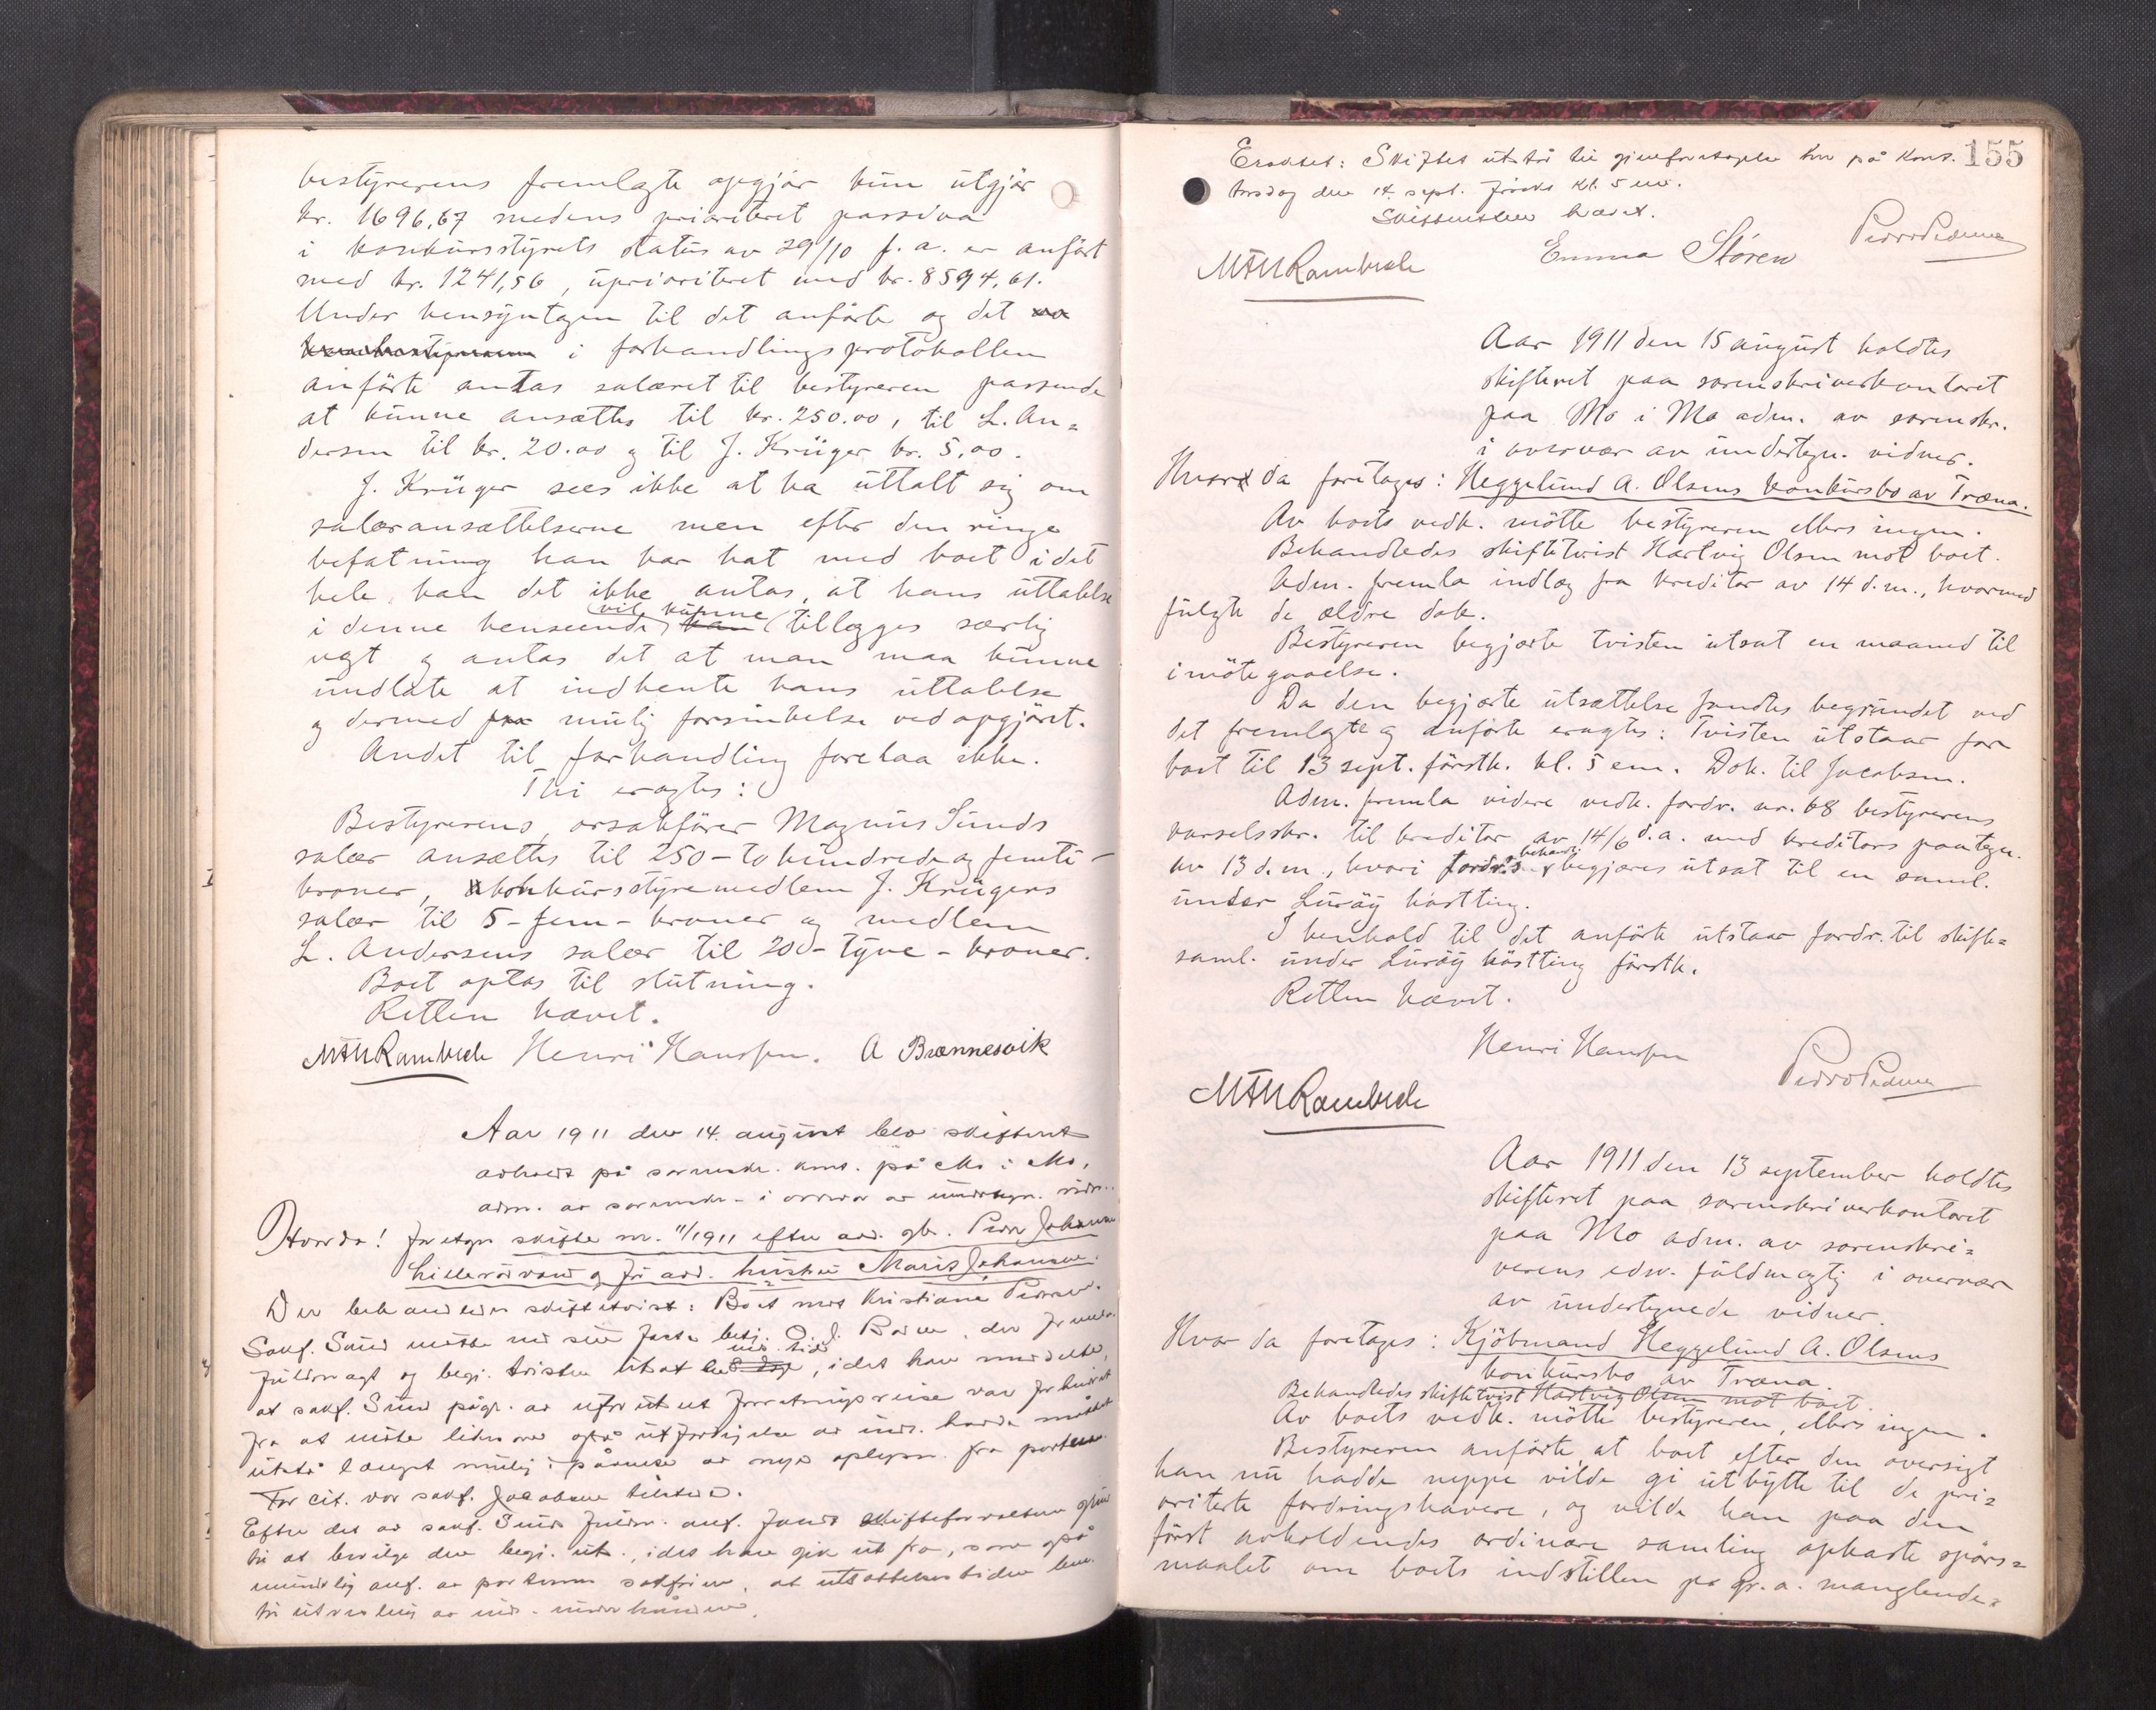 bestyrerens fremlagte opgjør kun utgjør
kr. 1696,67 medens prioritert passiva
i konkursstyrets status av 29/10 f. a. er anført
med kr. 1241,56, uprioritert med kr. 8594,61.
Under hensyntagen til det anførte og det
i forhandlingsprotokollen
anførte antas salæret til bestyreren passende
at kunne ansættes til kr. 250.00, til L. An=
dersen til kr. 20.00 og til J. Krüger kr. 5,00.
J. Krüger sees ikke at ha uttalt sig om
salæransættelserne men efter den ringe
befatning han har hat med boet i det
hele kan det ikke antas, at hans uttalelse
i denne henseende vil kunne tillægges særlig
vegt og antas det at man maa kunne
undlate at indhente hans uttalelse
og dermed mulig forsinkelse ved opgjøret.
Andet til forhandling forelaa ikke.
Thi eragtes:
Bestyrerens, orsakfører Magnus Sunds
salær ansættes til 250 - to hundrede og femti -
kroner, konkursstyremedlem J. Krügers
salær til 5 - fem - kroner og medlem
L. Andersens salær til 20 - tyve - kroner.
Boet optas til slutning.
Retten hævet.
MAURambech Henri Hanssen. A Brennesvik
Aar 1911 den 14. august blev skifteret
avholdt på sorenskr. kont. på Mo i Mo,
adm. av sorenskr. i overvær av undertegn. vidn.
Hvorda! foretages skifte nr. 11/1911 efter avd. gbr. Peder Johansen
og før avd. hustru Maris Johansen.
Der behandledes skiftetvist: Boet mot Kristiane Pedersen.
Sakf. Sund møtte ved sin
fuldmagt og begj. tvisten utsat, idet han meddelte,
at sakf. Sund pågr. av uforutset forretningsreise var forhindret
fra at møte
utstå længst mulig i påvente av nye oplysn. fra parten.
For cit. var sakf. Jacobsen tilstede.
Efter det av sakf. Sunds fuldm. anf. fandt skifteforvalteren
til at bevilge den begj. uts., idet han gik ut fra, som også
mundlig anf. av partens sakfører, at utsættelsestiden
155
Eragtet: Skiftet utstår til gjenforetagelse her på kont.
torsdag den 14. sept. førstk kl. 5 em.
Skifteretten hævet.
MAURambech Emma Støren Pedro Pedersen
Aar 1911 den 15 august holdtes
skifteret paa sorenskriverkontoret
paa Mo i Mo adm. av sorenskr.
i overvær av undertegn. vidner.
Hvor da foretages: Heggelund A. Olsens konkursbo av Træna.
Av boets vedk. møtte bestyreren ellers ingen.
Behandledes skiftetvist Hartvig Olsen mot boet.
Adm. fremla indlæg fra kreditor av 14 d.m., hvormed
fulgte de ældre dok.
Bestyreren begjærte tvisten utsat en maaned til
imøtegaaelse.
Da den begjærte utsættelse fandtes begrundet ved
det fremlagte og anførte eragtes: Tvisten utstaar for
boet til 13 sept. førstk. kl. 5 em. Dok. til Jacobsen.
Adm. fremla videre vedk. fordr. nr. 68 bestyrerens
varselsskr. til kreditor av 14/6 d.a. med kreditors paategn.
av 13 d.m., hvori fordr.s behandl. begjæres utsat til en saml.
under Lurøy høstting.
I henhold til det anførte utstaar fordr. til skifte=
saml. under Lurøy høstting førstk.
Retten hævet.
Henri Hanssen Pedro Pedersen
MAURambech
Aar 1911 den 13 september holdtes
skifteret paa sorenskriverkontoret
paa Mo adm. av sorenskri=
verens edsv. fuldmægtig i overvær
av undertegnede vidner.
Hvor da foretages: Kjøbmand Heggelund A. Olsens
konkursbo av Træna.
Behandledes skiftetvist Hartvig Olsen mot boet.
Av boets vedk. møtte bestyreren, ellers ingen.
Bestyreren anførte, at boet efter den oversigt
han nu hadde neppe vilde gi utbytte til de pri=
oriterte fordringshavere, og vilde han paa den
først avholdendes ordinære samling opkaste spørs=
maalet om boets indstillen pa gr. a. manglende=